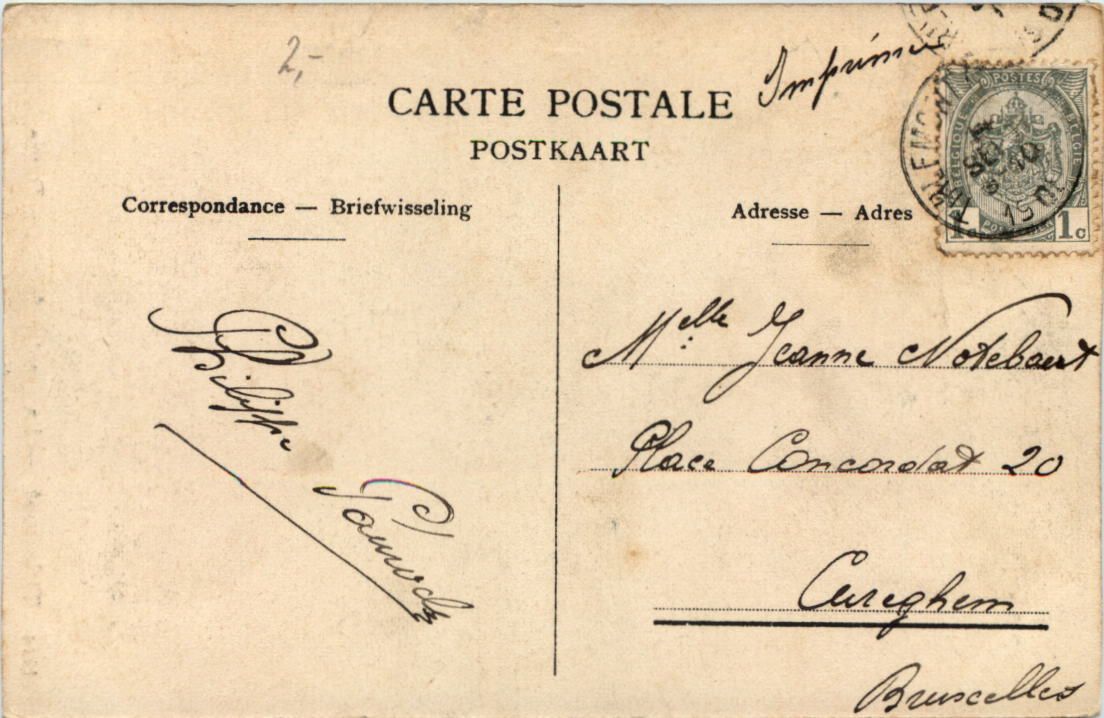 2,-
Imprimé
CARTE POSTALE
POSTKAART
Correspondance — Briefwisseling
Adresse — Adres
POSTES
BELGIQUE
BELGIE
1c 1c
TIRLEMONT
15
10
Philippe
Melle Jeanne Notebaert
Place Concordat 20
Cureghem
Bruxelles